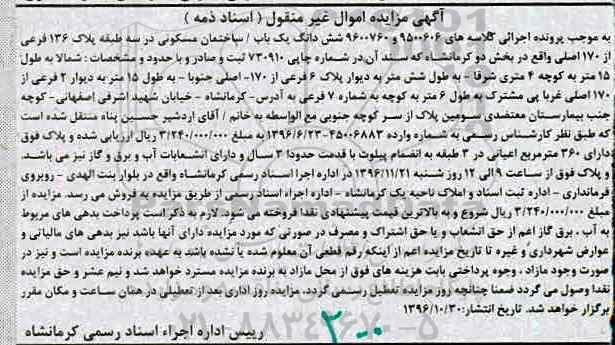 آگهی مزایده اموال غیر منقول ( اسناد ذمه )
به موجب پرونده اجرائی کلاسه های ۹۵۰۰۶۰۶ و ۹۶۰۰۷۶۰ شش دانگ یک باب / ساختمان مسکونی در سه طبقه پلاک ۱۳۶ فرعی
از ۱۷۰ اصلی واقع در بخش دو کرمانشاه که سند آن در شماره چاپی ۷۳۰۹۱۰ ثبت و صادر و با حدود و مشخصات : شمالا به طول
۱۵ متر به کوچه ۴ متری شرقا - به طول شش متر به دیوار پلاک ۶ فرعی از ۱۷۰- اصلی جنوبا - به طول ۱۵ متر به دیوار ۲ فرعی از
۱۷۰ اصلی غربا پی مشترک به طول ۶ متر به کوچه به شماره ۷ فرعی به آدرس - کرمانشاه - خیابان شهید اشرفی اصفهانی- کوچه
جنب بیمارستان معتضدی سومین پلاک از سر کوچه جنوبی مع الواسطه به خانم / آقای اردشیر حسین پناه منتقل شده است
که طبق نظر کارشناس رسمی به شماره وارده ۴۵۰۰۶۸۸۳-۱۳۹۶/۶/۲۳ به مبلغ ۳/۲۴۰/۰۰۰/۰۰۰ ریال ارزیابی شده و پلاک فوق
دارای ۳۶۰ مترمربع اعیانی در ۳ طبقه به انضمام پیلوت با قدمت حدودا ۳ سال و دارای انشعابات آب و برق و گاز نیز می باشد.
و پلاک فوق از ساعت ۹ الی ۱۲ روز شنبه ۱۳۹۶/۱۱/۲۱ در اداره اجرا اسناد رسمی کرمانشاه واقع در بلوار بنت الهدی - روبروی
فرمانداری - اداره ثبت اسناد و املاک ناحیه یک کرمانشاه - اداره اجراء اسناد رسمی از طریق مزایده به فروش می رسد. مزایده از
مبلغ ۳/۲۴۰/۰۰۰/۰۰۰ ریال شروع و به بالاترین قیمت پیشنهادی نقدا فروخته می شود. لازم به ذکر است پرداخت بدهی های مربوط
به آب ، برق گاز اعم از حق انشعاب و یا حق اشتراک و مصرف در صورتی که مورد مزایده دارای آنها باشد نیز بدهی های مالیاتی و
عوارض شهرداری و غیره تا تاریخ مزایده اعم از اینکه رقم قطعی آن معلوم شده یا نشده باشد به عهده برنده مزایده است و نیز در
صورت وجود مازاد ، وجوه پرداختی بابت هزینه های فوق از محل مازاد به برنده مزایده مسترد خواهد شد و نیم عشر و حق مزایده
نقدا وصول می گردد ضمنا چنانچه روز مزایده تعطیل رسمی گردد، مزایده روز اداری بعد از تعطیلی در همان ساعت و مکان مقرر
برگزار خواهد شد. تاریخ انتشار: ۱۳۹۶/۱۰/۳۰
رییس اداره اجراء اسناد رسمی کرمانشاه
۰۲۱-۸۸۳۴۹۶۷۰-۵